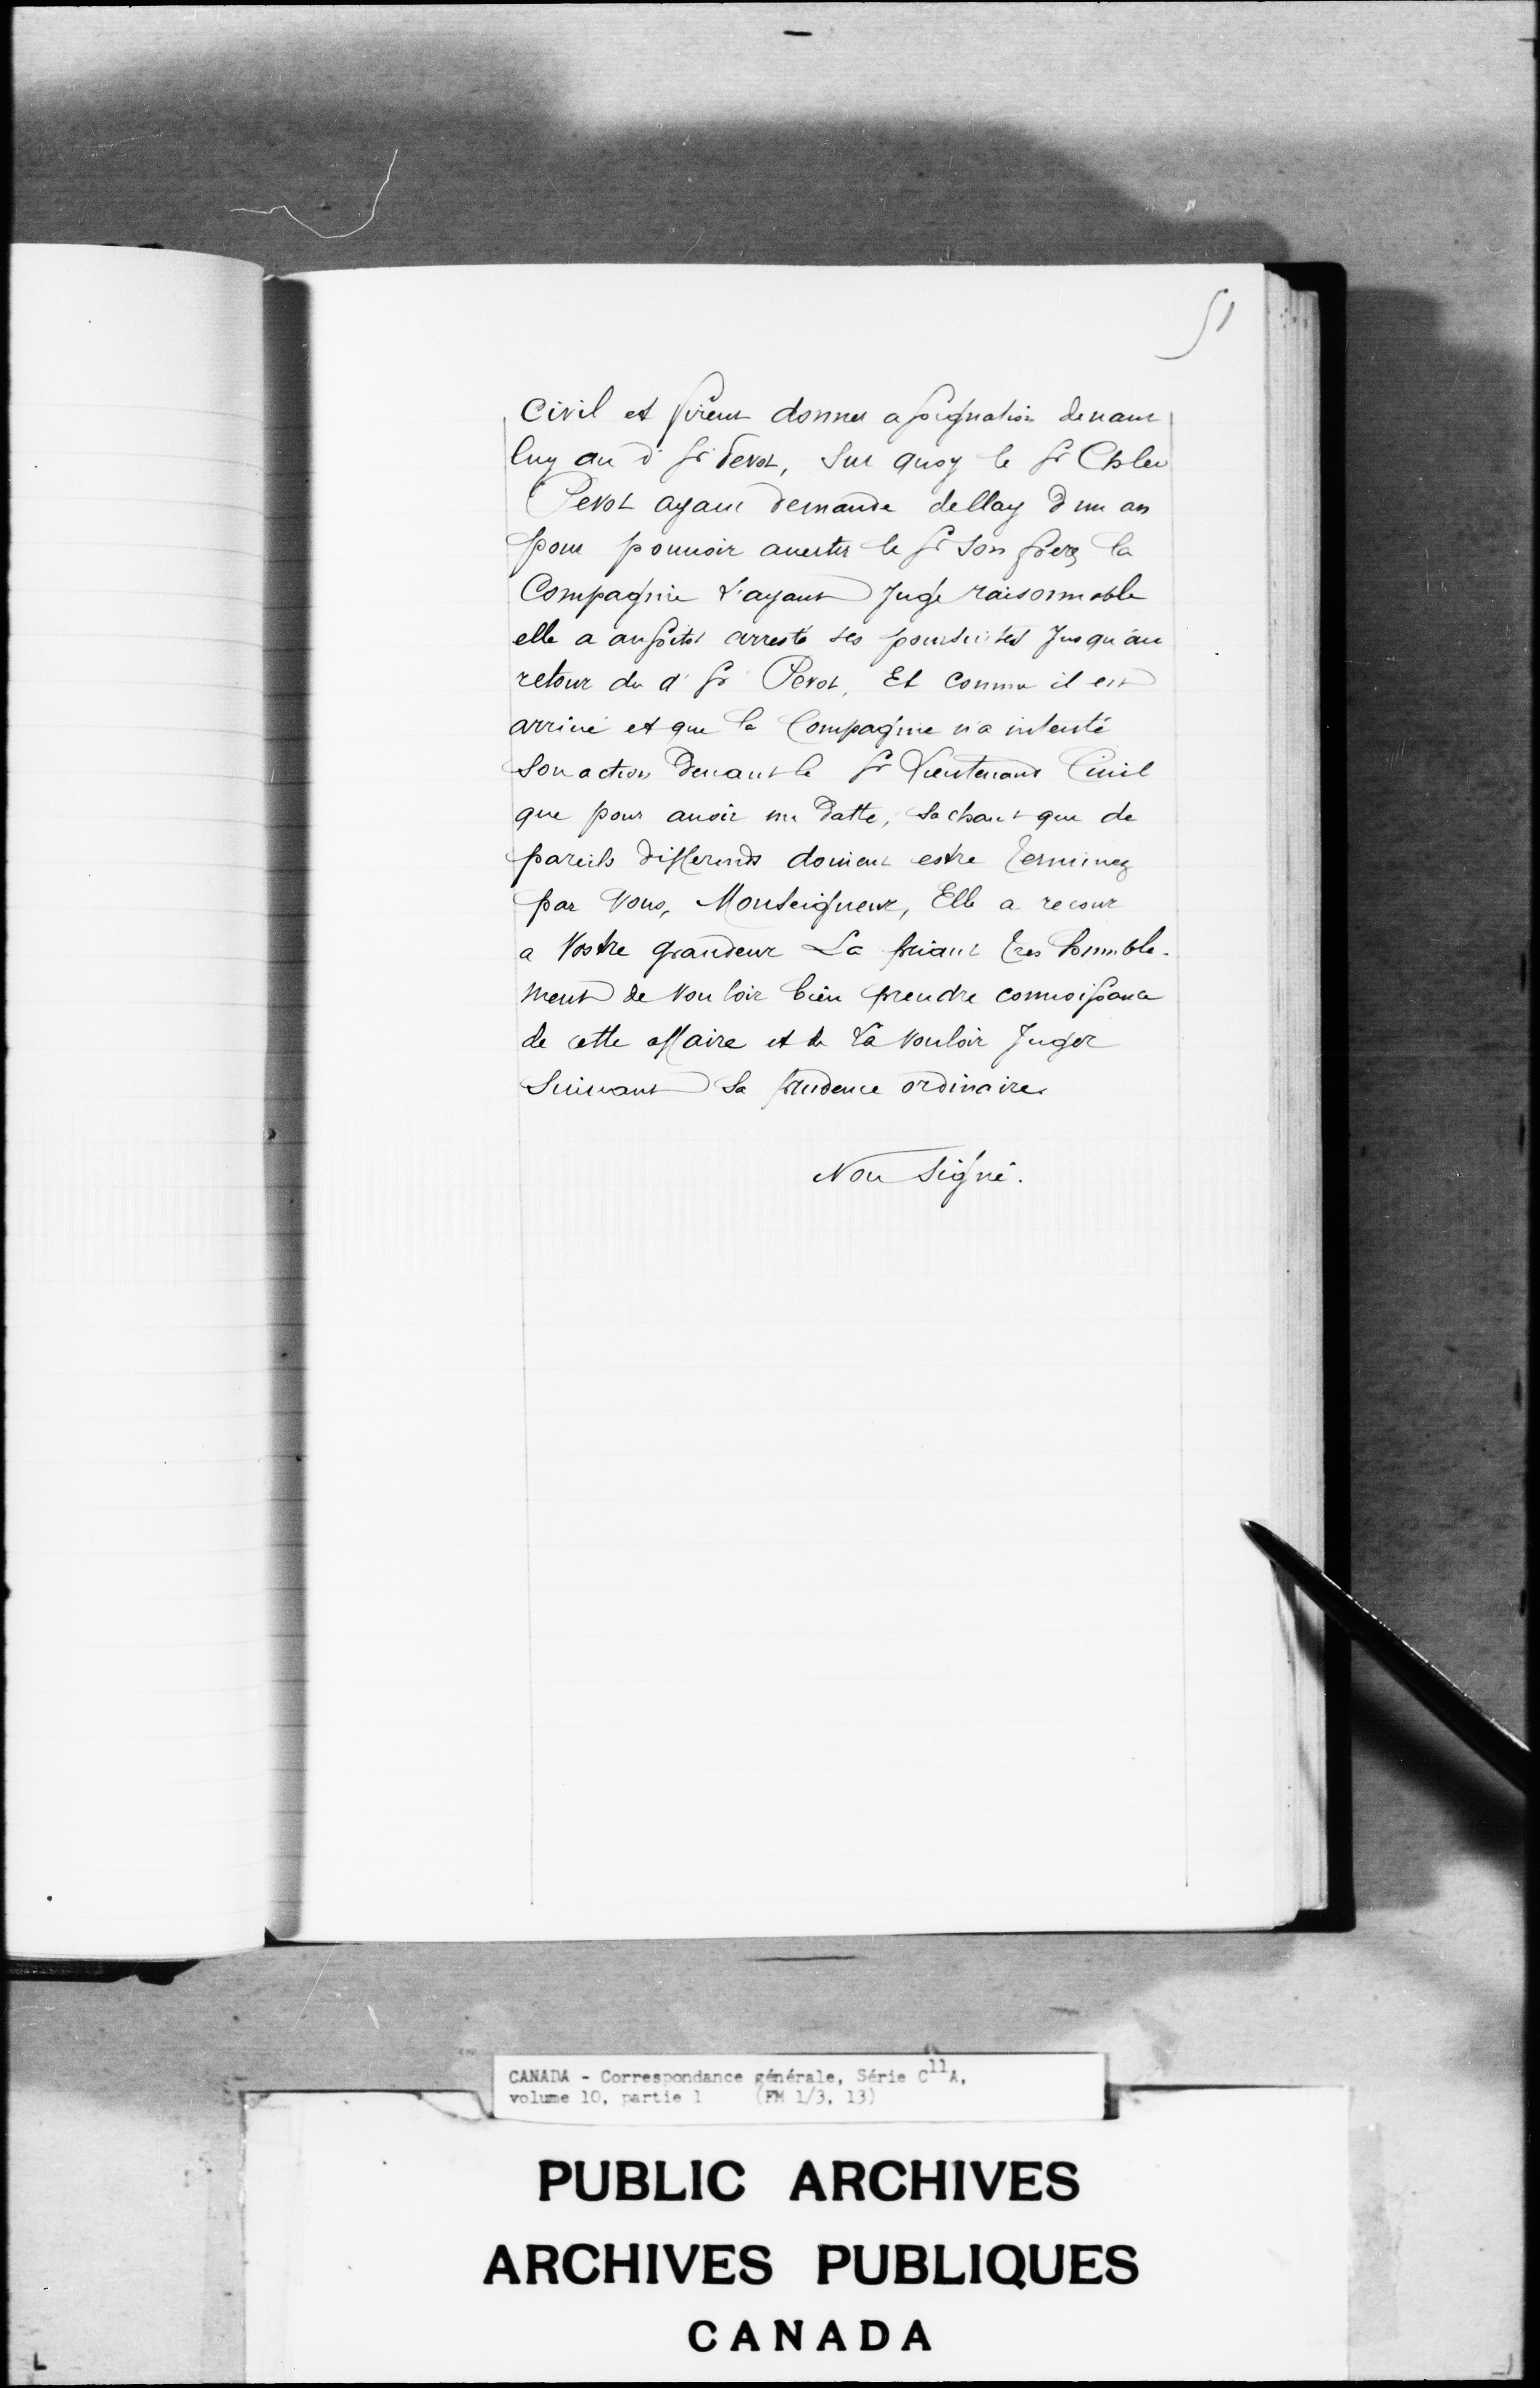 51
Civil et firent donner assignation devant
luy au d. Sr Perot, Sur quoy le Sr
Perot ayant demande dellay d'un an
pour pouvoir auertir le Sr Son frere, la
Compagnie L'ayant Jugé raisonnable
elle a aussitôt arresté ses poursuites Jusqu'au
retour du d. Sr Perot, Et comme il est
arriué et que la Compagnie n'a intenté
Son action deuant le Sr Lieutenant Ciuil
que pour auoir une Datte, sachant que de
pareils differends doiuent estre terminez
par vous, Monseigneur, Elle a recour
a Vostre grandeur La priant tres humble-
ment de vouloir bien prendre connoissance
de cette affaire et de La vouloir Juger
Suiuant Sa prudence ordinaire.
Non Signé.
CANADA - Correspondance générale, Série C11A,
volume 10, partie 1 (FM 1/3, 13)
PUBLIC ARCHIVES
ARCHIVES PUBLIQUES
CANADA